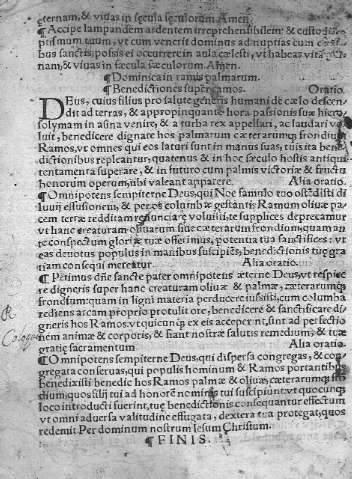 æternam, & viuas in sæcula sæculorum Amen.
¶ Accipe lampandem ardentem irreprehensibilem: & custodi
ptismum tuum, vt cum venerit dominus ad nuptias cum
bus sanctis, possis ei occurrere in aula cælesti, vt habeas vitā
nam, & viuas in sæcula sæculorum Amen.
¶ Dominica in ramis palmarum.
¶ Benedictiones super ramos. Oratio.
DEus, cuius filius pro salute generis humani de cælo descen
dit ad terras, & appropinquante hora passionis suæ hiero
solymam in asina venire, & a turba rex appellari, ac laudari vo
luit, benedicere dignare hos palmarum cæterarumq; frondium
Ramos, vt omnes qui eos laturi sunt in manus suas, tuis ita bene
dictionibus repleantur, quatenus & in hoc sæculo hostis antiqui
tentamenta superare, & in futuro cum palmis victoriæ & fructu
honorum operum, tibi valeant apparere. Alia oratio.
¶ Omnipotens sempiterne Deus, qui Noe famulo tuo ostēdisti di
luuij effusionem, & per os columbæ gestantis Ramum oliuæ pa
cem terræ redditam nunciare voluisti, te supplices deprecamur
vt hanc creaturam oliuarum siue cæterarum frondium, quam an
te conspectum gloriæ tuæ offerimus, potentia tua sanctificet: vt
eas deuotus populus in manibus suscipiēs, benedictionis tuę gra
tiam consequi mereatur. Alia oratio.
¶ Petimus dñe sancte pater omnipotens æterne Deus, vt respice
re digneris super hanc creaturam oliuæ & palmæ, cæterarumq;
frondium: quam in ligni materia perducere iussisti, cum columba
rediens arcam proprio protulit ore, benedicere & sanctificare di
gneris hos Ramos, vt quicunq; ex eis acceperint, sint ad perfectio
nem animæ & corporis, & fiant nostræ salutis remedium, & tuæ
gratię sacramentum. Alia oratio.
¶ Omnipotens sempiterne Deus, qui dispersa congregas, & con
gregata conseruas, qui populis hominum & Ramos portantibus
benedixisti benedic hos Ramos palmæ & oliuæ, cæterarumq; fron
dium, quos filij tui ad honorē nominis tui suscipiunt, vt quocunq;
loco introducti fuerint, tuę benedictionis consequantur effectum
vt omni aduersa valitudine effugata, dextera tua protegat, quos
redemit Per dominum nostrum Iesum Christum.
¶ FINIS.